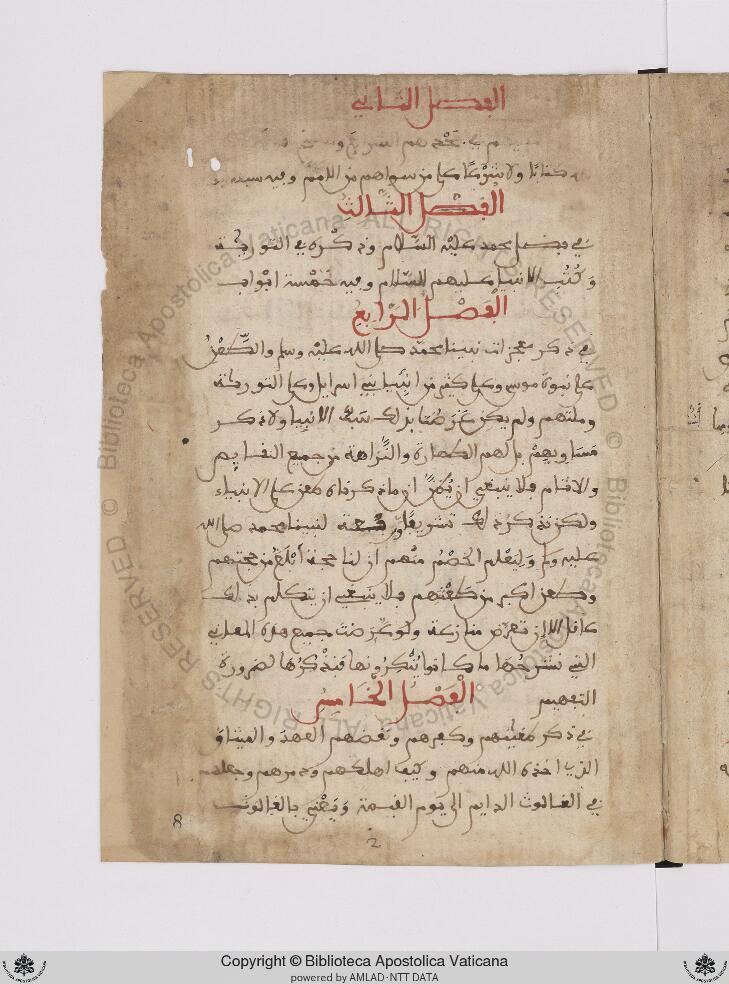 الفصل الثاني
ولا تتركا على من سواهم من الامم وفيه
الفصل الثالث
في فضل محمد عليه السلام وذكره في التورية
وكتب الانبيا عليهم السلام وفيه خمسة ابواب
الفصل الرابع
في ذكر معجزات نبينا محمد صلى الله عليه وسلم والطعن
على نبوة موسى وعلى كثير من انبيا بني اسرايل وعلى التورية
وملتهم ولم يكن غرضنا بذلك سب الانبيا ولا ذكر
مساويهم بل لهم الطهارة والنزاهة من جميع النقايص
والاثام فلا ينبغي ان يظن ان ما ذكرناه طعن على الانبياء
ولكن نذكر ذلك تشريفا لنبينا محمد صلى الله
عليه وسلم وليعلم الخصم منهم ان لنا حجة ابلغ من حجتهم
وطعن اكبر من طعنهم فلا ينبغي ان يتكلم بذلك
عاقل الا ان تعرض منازعة ولو عرضت جميع هذه المعاني
التي نشرحها ما كانوا ينكرونها فنذكرها لضرورة
التفهيم الفصل الخامس
في ذكر وكفرهم ونقضهم العهد والميثاق
الذي اخذه الله منهم وكيف اهلكهم ودمرهم وجعلهم
في الغالوث الدايم الى يوم القيمة ونعني بالغالوث
8
2
© Biblioteca Apostolica Vaticana ALL RIGHTS RESERVED
Copyright © Biblioteca Apostolica Vaticana
powered by AMLAD·NTT DATA